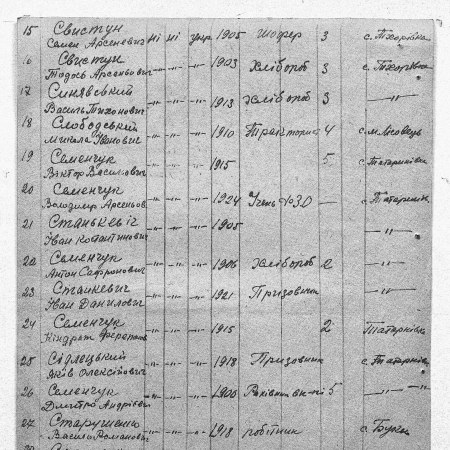 15 Свистун
Семен Арсеневич ні ні укр 1905 Шофер 3 с. Тхорівка
16 Свистун
Тодось Арсеньович -"- -"- -"- 1903 Хлібороб 3 с. Тхорівка
17 Синявський
Василь Тихонович -"- -"- -"- 1913 Хлібороб 3 -"-
18 Слободський
Микола Іванович -"- -"- -"- 1910 Тракторист 4
19 Семенчук
Віктор Васильович -"- -"- -"- 1915 5 с. Татаринівка
20 Семенчук
Володимир Арсеньов -"- -"- -"- 1924 Учень —
21 Станькевіч
Іван -"- -"- -"- 1905 -"-
22 Семенчук
Антон Сафронович -"- -"- -"- 1906 Хлібороб 2 -"-
23 Станкевич
Іван Данилович -"- -"- -"- 1921 Призовник -"-
24 Семенчук
Кіндрат -"- -"- -"- 1915 2
25 Сідлецький
Яків Олексійович -"- -"- -"- 1918 Призовник
26 Семенчук
Дмитро Андрієвич -"- -"- -"- 1900 5 -"-
27
Василь Романович -"- -"- -"- 1918 робітник с. Буки